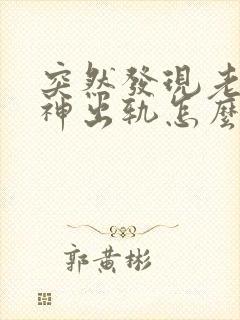 突然發現老
神出軌怎麼
郭黃彬